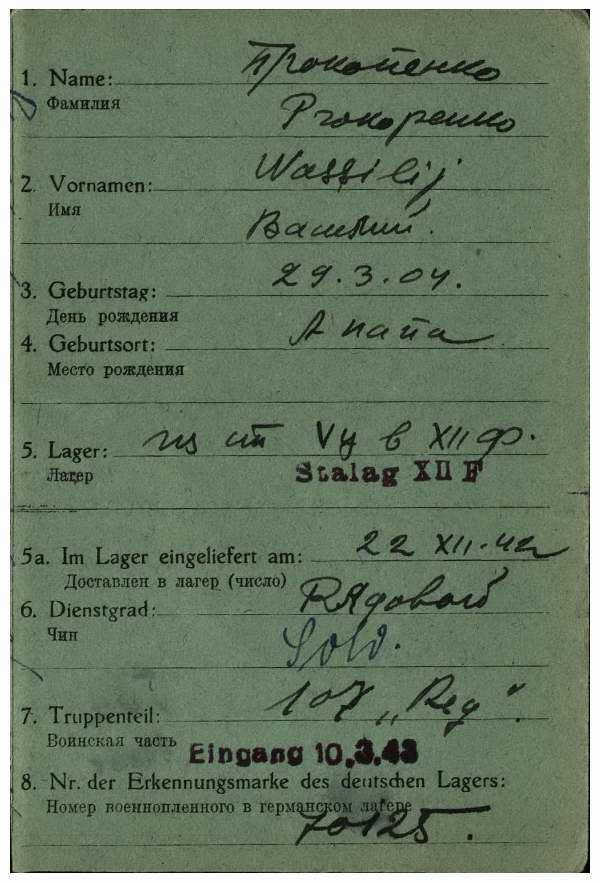 1. Name: Прокопенко
Фамилия
Prokopenko
2. Vornamen: Wassilij
Имя
Василий.
3. Geburtstag: 29.3.04.
День рождения
4. Geburtsort: Анапа
Место рождения
5. Lager: из ст в XII ф.
Лагер
Stalag XII F
5a. Im Lager eingeliefert am: 22 XII.42
Доставлен в лагер (число)
6. Dienstgrad: Рядовой
Чин
Sold.
7. Truppenteil: 107 „Reg“.
Воинская часть
Eingang 10.3.43
8. Nr. der Erkennungsmarke des deutschen Lagers:
Номер военнопленного в германском лагере
70125.